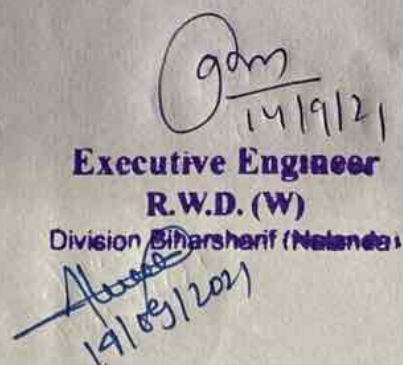 14/9/21
Executive Engineer
R.W.D. (W)
Division Biharsharif (Nalanda)
14/09/2021